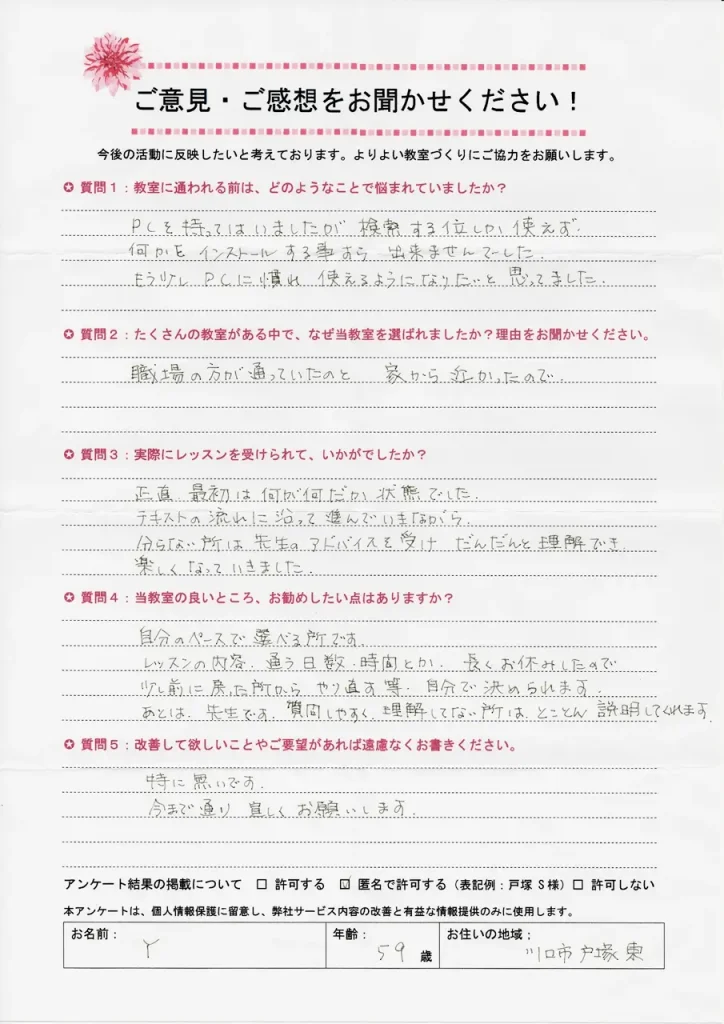 ご意見・ご感想をお聞かせください！
今後の活動に反映したいと考えております。よりよい教室づくりにご協力をお願いします。
✪ 質問１：教室に通われる前は、どのようなことで悩まれていましたか？
PCを持ってはいましたが 検索する位しか使えず、
何かを インストールする事すら 出来ませんでした.
もう少し PCに慣れ 使えるようになりたいと 思ってました.
✪ 質問２：たくさんの教室がある中で、なぜ当教室を選ばれましたか？理由をお聞かせください。
職場の方が通っていたのと 家から近かったので.
✪ 質問３：実際にレッスンを受けられて、いかがでしたか？
正直、最初は何が何だか状態でした.
テキストの流れに沿って進んでいきながら.
分らない所は先生のアドバイスを受け だんだんと理解でき.
楽しくなっていきました.
✪ 質問４：当教室の良いところ、お勧めしたい点はありますか？
自分のペースで選べる所です.
レッスンの内容、通う日数・時間とか、長くお休みしたので
少し前に戻った所から やり直す等、自分で決められます.
あとは、先生です. 質問しやすく、理解してない所は、とことん説明してくれます
✪ 質問５：改善して欲しいことやご要望があれば遠慮なくお書きください。
特に無いです.
今まで通り 宜しくお願いします.
アンケート結果の掲載について □ 許可する ☑ 匿名で許可する（表記例：戸塚 S様）□ 許可しない
本アンケートは、個人情報保護に留意し、弊社サービス内容の改善と有益な情報提供のみに使用します。
お名前： Y 年齢： 59 歳 お住いの地域： 川口市戸塚東